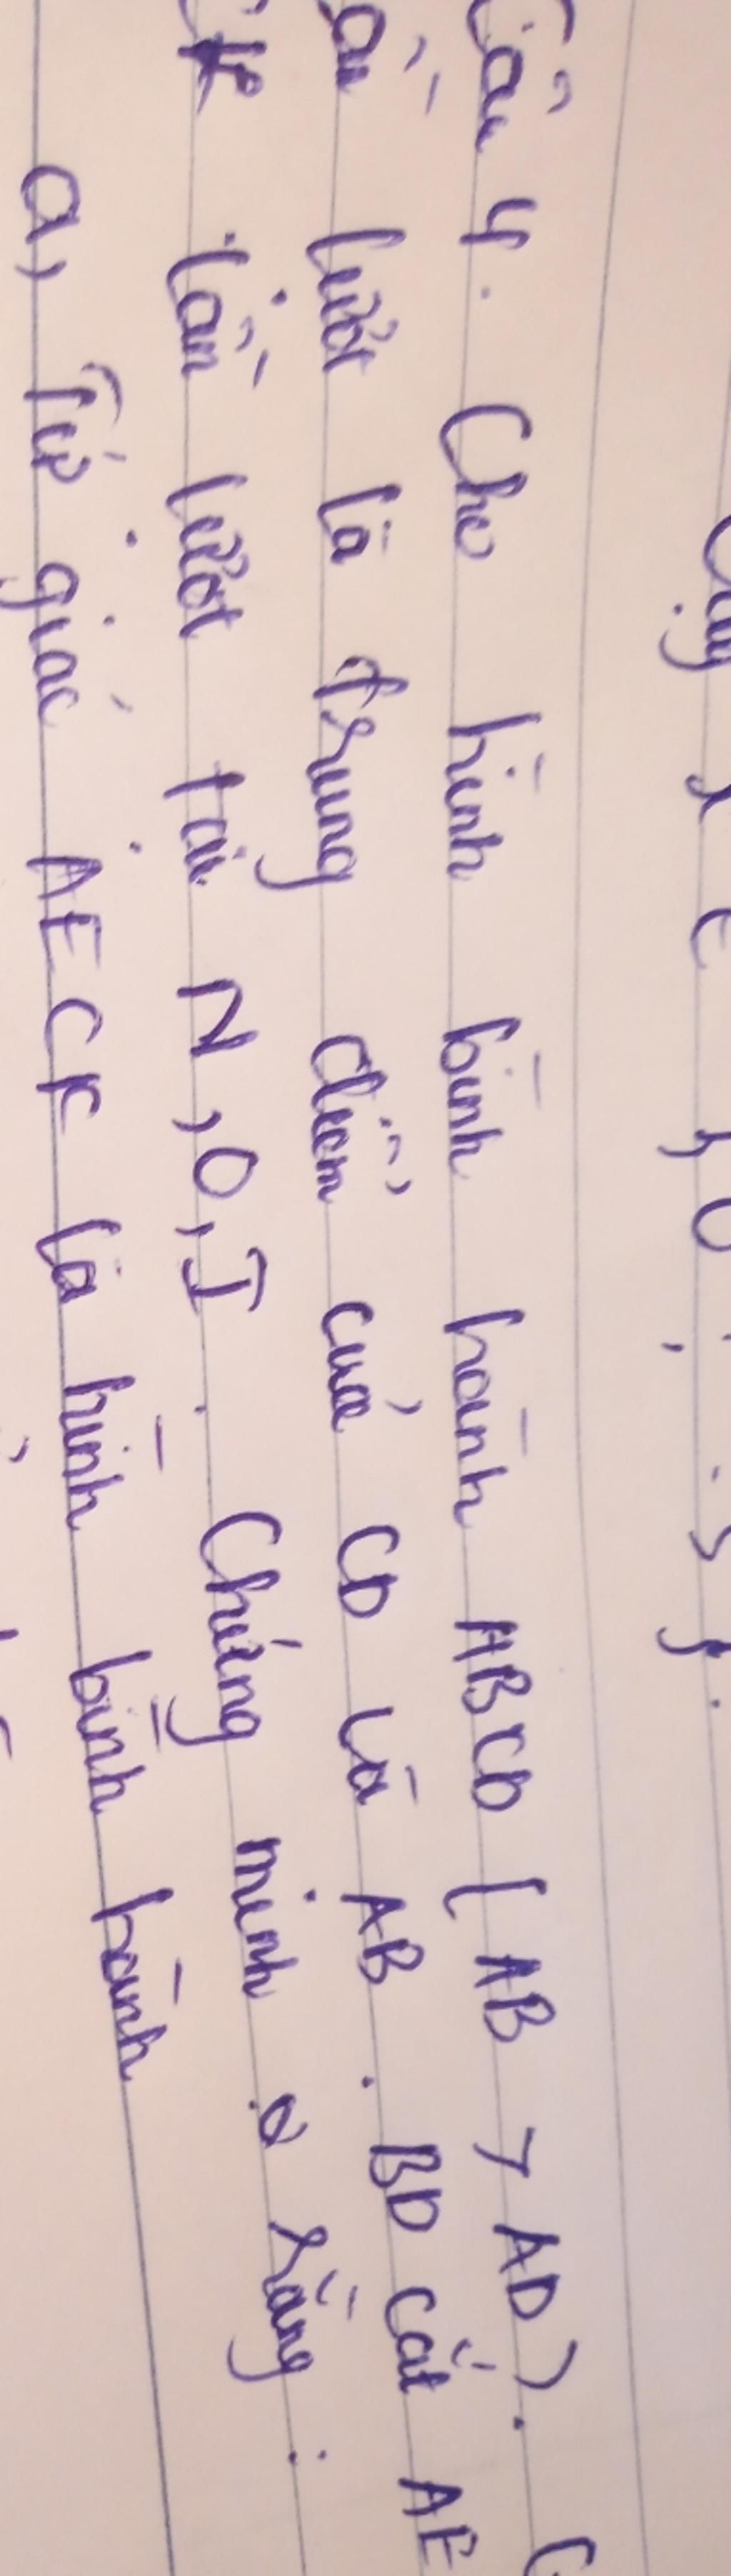 Câu 4. Cho hình bình hành ABCD (AB > AD).
lần lượt là trung điểm của CD và AB. BD cắt AE
CK lần lượt tại N, O, I. Chứng minh rằng:
a, Tứ giác AECK là hình bình hành